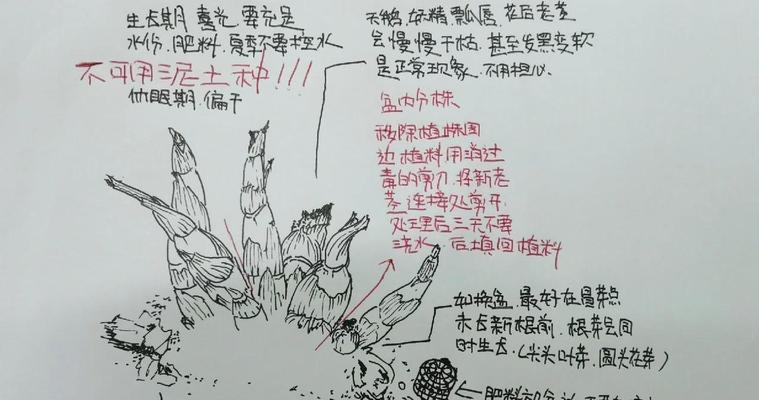 生长期,喜光,要充足
水份,肥料,夏季不要控水
不可用泥土种!!!
休眠期,偏干
天鹅,妖精,瓢唇,花后老茎
会慢慢干枯,甚至发黑变软
是正常现象,不用担心.
盆内分株
移除植株周
边植料用消过
毒的剪刀,将新老
茎连接处剪开,
处理后三天不要
浇水,后填回植料
如换盆,最好在冒芽点
未长新根前,根芽会同
时生长.(尖头叶芽,圆头花芽)
肥料